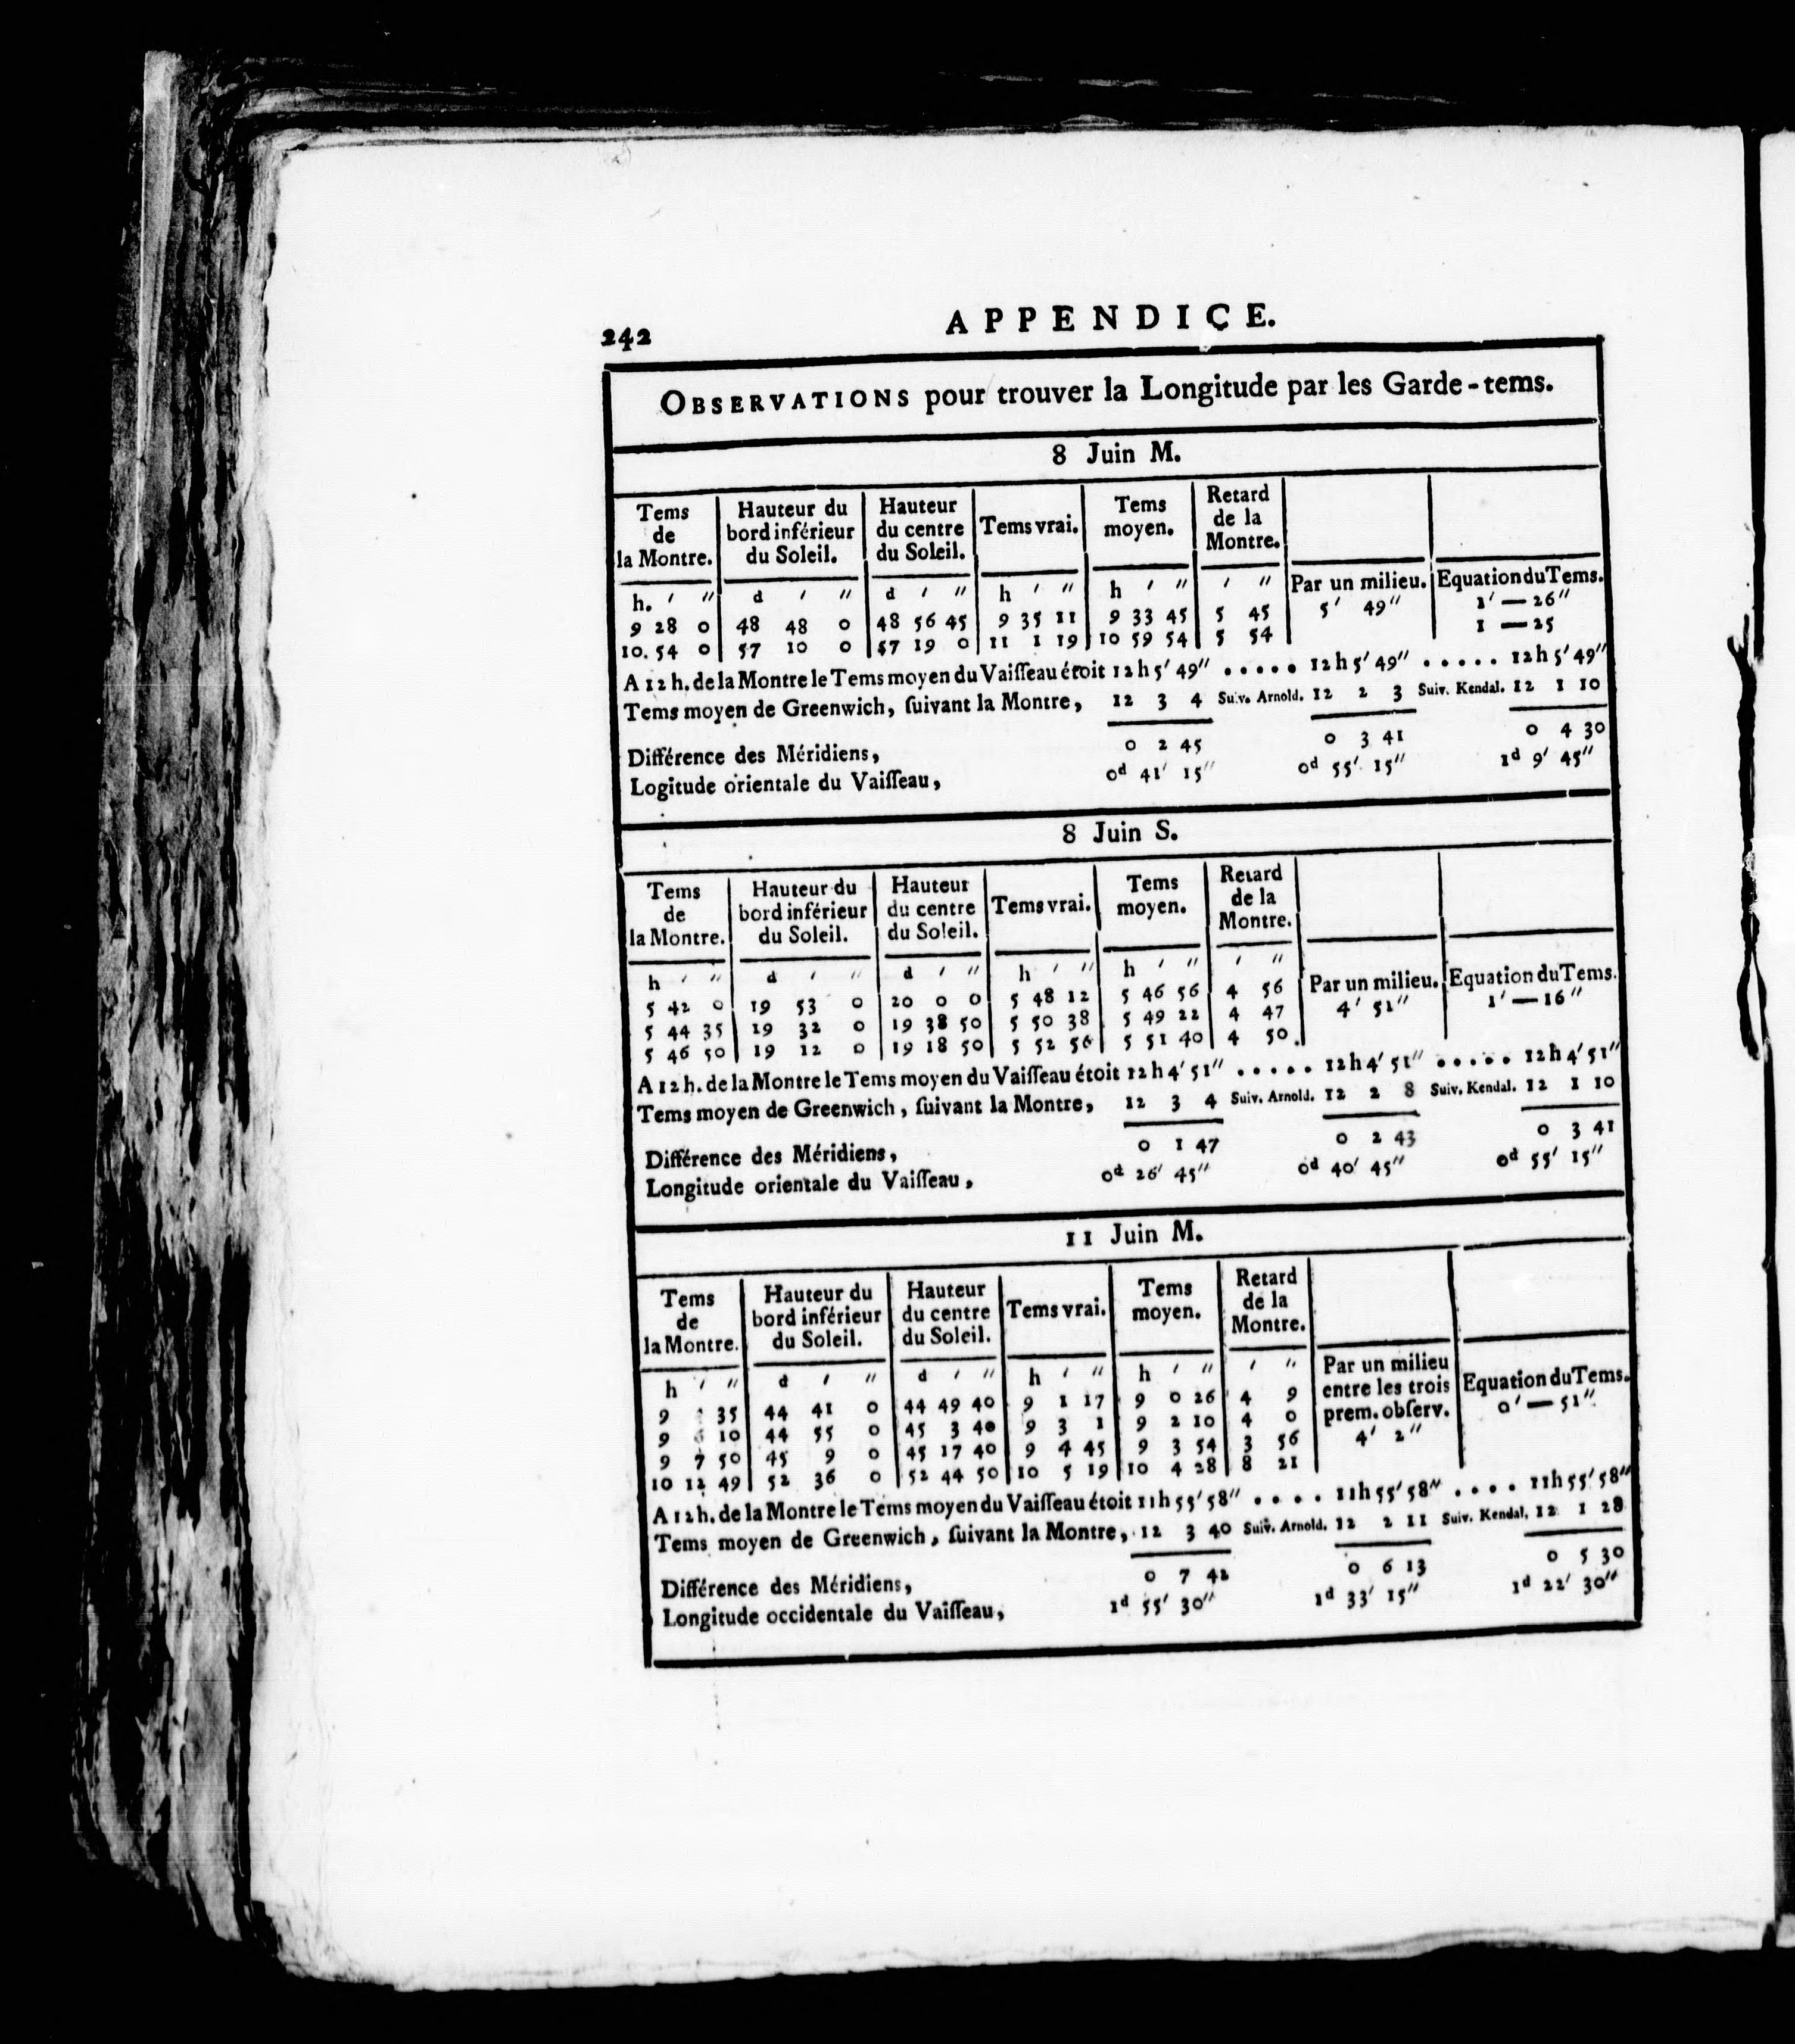 242
APPENDICE.
OBSERVATIONS pour trouver la Longitude par les Garde-tems.
8 Juin M.
Tems de la Montre. | Hauteur du bord inférieur du Soleil. | Hauteur du centre du Soleil. | Tems vrai. | Tems moyen. | Retard de la Montre. | Par un milieu. | Equation du Tems.
h. ′ ″ | d ′ ″ | d ′ ″ | h ′ ″ | h ′ ″ | ′ ″
9 28 0 | 48 48 0 | 48 56 45 | 9 35 11 | 9 33 45 | 5 45 | 5′ 49″ | 1′ — 26″
10. 54 0 | 57 10 0 | 57 19 0 | 11 1 19 | 10 59 54 | 5 54 | | 1 — 25
A 12 h. de la Montre le Tems moyen du Vaiſſeau étoit 12h 5′ 49″ ..... 12h 5′ 49″ ..... 12h 5′ 49″
Tems moyen de Greenwich, ſuivant la Montre, 12 3 4 Suiv. Arnold. 12 2 3 Suiv. Kendal. 12 1 10
Différence des Méridiens, 0 2 45 0 3 41 0 4 30
Logitude orientale du Vaiſſeau, 0d 41′ 15″ 0d 55′ 15″ 1d 9′ 45″
8 Juin S.
Tems de la Montre. | Hauteur du bord inférieur du Soleil. | Hauteur du centre du Soleil. | Tems vrai. | Tems moyen. | Retard de la Montre. | Par un milieu. | Equation du Tems.
h ′ ″ | d ′ ″ | d ′ ″ | h ′ ″ | h ′ ″ | ′ ″
5 42 0 | 19 53 0 | 20 0 0 | 5 48 12 | 5 46 56 | 4 56 | 4′ 51″ | 1′ — 16″
5 44 35 | 19 32 0 | 19 38 50 | 5 50 38 | 5 49 22 | 4 47
5 46 50 | 19 12 0 | 19 18 50 | 5 52 56 | 5 51 40 | 4 50.
A 12 h. de la Montre le Tems moyen du Vaiſſeau étoit 12h 4′ 51″ ..... 12h 4′ 51″ ..... 12h 4′ 51″
Tems moyen de Greenwich, ſuivant la Montre, 12 3 4 Suiv. Arnold. 12 2 8 Suiv. Kendal. 12 1 10
Différence des Méridiens, 0 1 47 0 2 43 0 3 41
Longitude orientale du Vaiſſeau, 0d 26′ 45″ 0d 40′ 45″ 0d 55′ 15″
11 Juin M.
Tems de la Montre. | Hauteur du bord inférieur du Soleil. | Hauteur du centre du Soleil. | Tems vrai. | Tems moyen. | Retard de la Montre. | Par un milieu entre les trois prem. obſerv. | Equation du Tems.
h ′ ″ | d ′ ″ | d ′ ″ | h ′ ″ | h ′ ″ | ′ ″
9 35 | 44 41 0 | 44 49 40 | 9 1 17 | 9 0 26 | 4 9 | 4′ 2″ | 0′ — 51″
9 6 10 | 44 55 0 | 45 3 40 | 9 3 1 | 9 2 10 | 4 0
9 7 50 | 45 9 0 | 45 17 40 | 9 4 45 | 9 3 54 | 3 56
10 12 49 | 52 36 0 | 52 44 50 | 10 5 19 | 10 4 28 | 8 21
A 12 h. de la Montre le Tems moyen du Vaiſſeau étoit 11h 55′ 58″ .... 11h 55′ 58″ .... 11h 55′ 58″
Tems moyen de Greenwich, ſuivant la Montre, 12 3 40 Suiv. Arnold. 12 2 11 Suiv. Kendal, 12 1 28
Différence des Méridiens, 0 7 42 0 6 13 0 5 30
Longitude occidentale du Vaiſſeau, 1d 55′ 30″ 1d 33′ 15″ 1d 22′ 30″